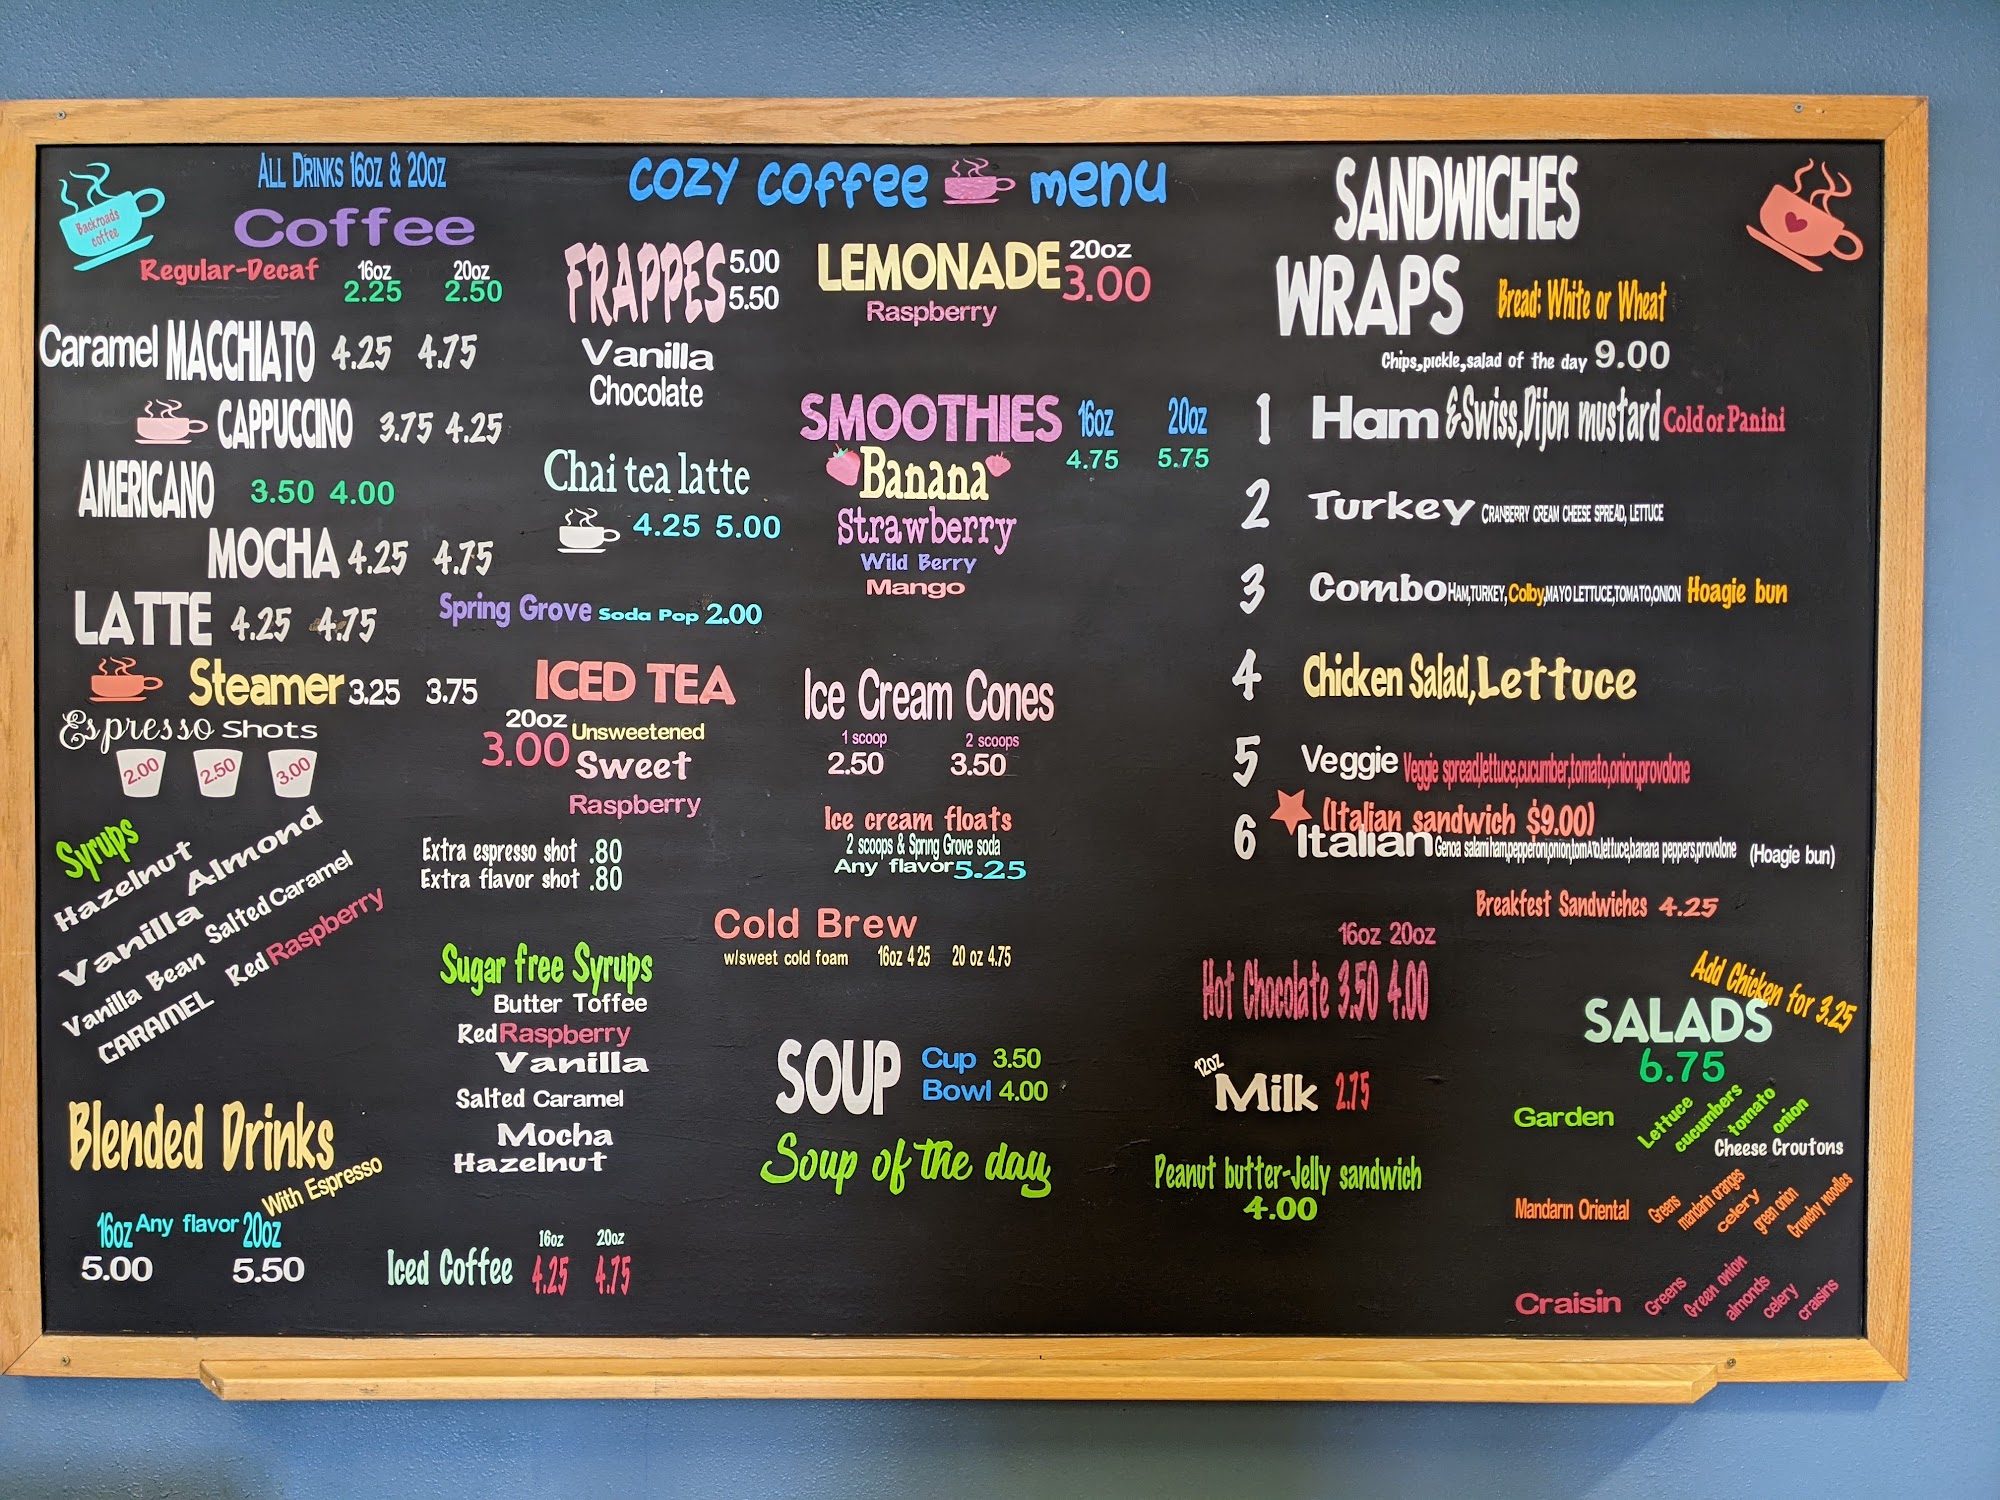 Backroads
coffee
ALL DRINKS 16OZ & 20OZ
Coffee
Regular-Decaf
16oz 20oz
2.25 2.50
Caramel MACCHIATO 4.25 4.75
CAPPUCCINO 3.75 4.25
AMERICANO 3.50 4.00
MOCHA 4.25 4.75
LATTE 4.25 4.75
Steamer 3.25 3.75
Espresso Shots
2.00 2.50 3.00
Syrups
Hazelnut
Vanilla Almond
Vanilla Bean Salted Caramel
CARAMEL Red Raspberry
Blended Drinks
With Espresso
16oz Any flavor 20oz
5.00 5.50
cozy coffee menu
FRAPPES 5.00
5.50
Vanilla
Chocolate
Chai tea latte
4.25 5.00
Spring Grove Soda Pop 2.00
ICED TEA
20oz Unsweetened
3.00 Sweet
Raspberry
Extra espresso shot .80
Extra flavor shot .80
Sugar free Syrups
Butter Toffee
Red Raspberry
Vanilla
Salted Caramel
Mocha
Hazelnut
Iced Coffee 16oz 20oz
4.25 4.75
LEMONADE 20oz
3.00
Raspberry
SMOOTHIES 16oz 20oz
4.75 5.75
Banana
Strawberry
Wild Berry
Mango
Ice Cream Cones
1 scoop 2 scoops
2.50 3.50
Ice cream floats
2 scoops & Spring Grove soda
Any flavor 5.25
Cold Brew
w/sweet cold foam 16oz 4 25 20 oz 4.75
SOUP Cup 3.50
Bowl 4.00
Soup of the day
SANDWICHES
WRAPS Bread: White or Wheat
Chips,pickle,salad of the day 9.00
1 Ham & Swiss,Dijon mustard Cold or Panini
2 Turkey CRANBERRY CREAM CHEESE SPREAD, LETTUCE
3 Combo HAM,TURKEY, Colby,MAYO LETTUCE,TOMATO,ONION Hoagie bun
4 Chicken Salad,Lettuce
5 Veggie Veggie spread,lettuce,cucumber,tomato,onion,provolone
(Italian sandwich $9.00)
6 Italian Genoa salami,ham,pepperoni,onion,tomAto,lettuce,banana peppers,provolone (Hoagie bun)
Breakfest Sandwiches 4.25
16oz 20oz
Hot Chocolate 3.50 4.00
12oz
Milk 2.75
Peanut butter-Jelly sandwich
4.00
Add Chicken for 3.25
SALADS
6.75
Garden Lettuce cucumbers tomato onion
Cheese Croutons
Mandarin Oriental Greens mandarin oranges celery green onion Crunchy noodles
Craisin Greens Green onion almonds celery craisins